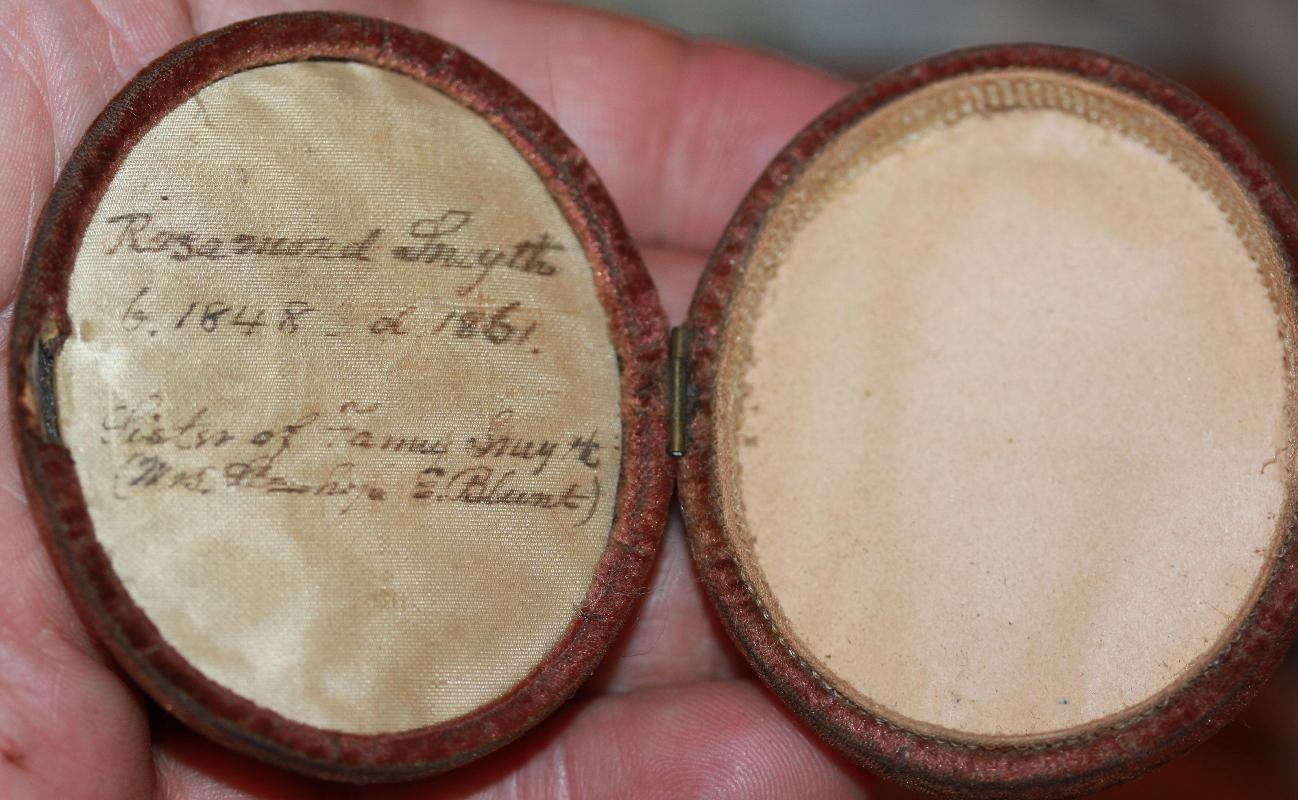 Rosamond Smyth
b. 1848 - d 1861.
Sister of Fanny Smyth
(Mrs. E. Blunt)